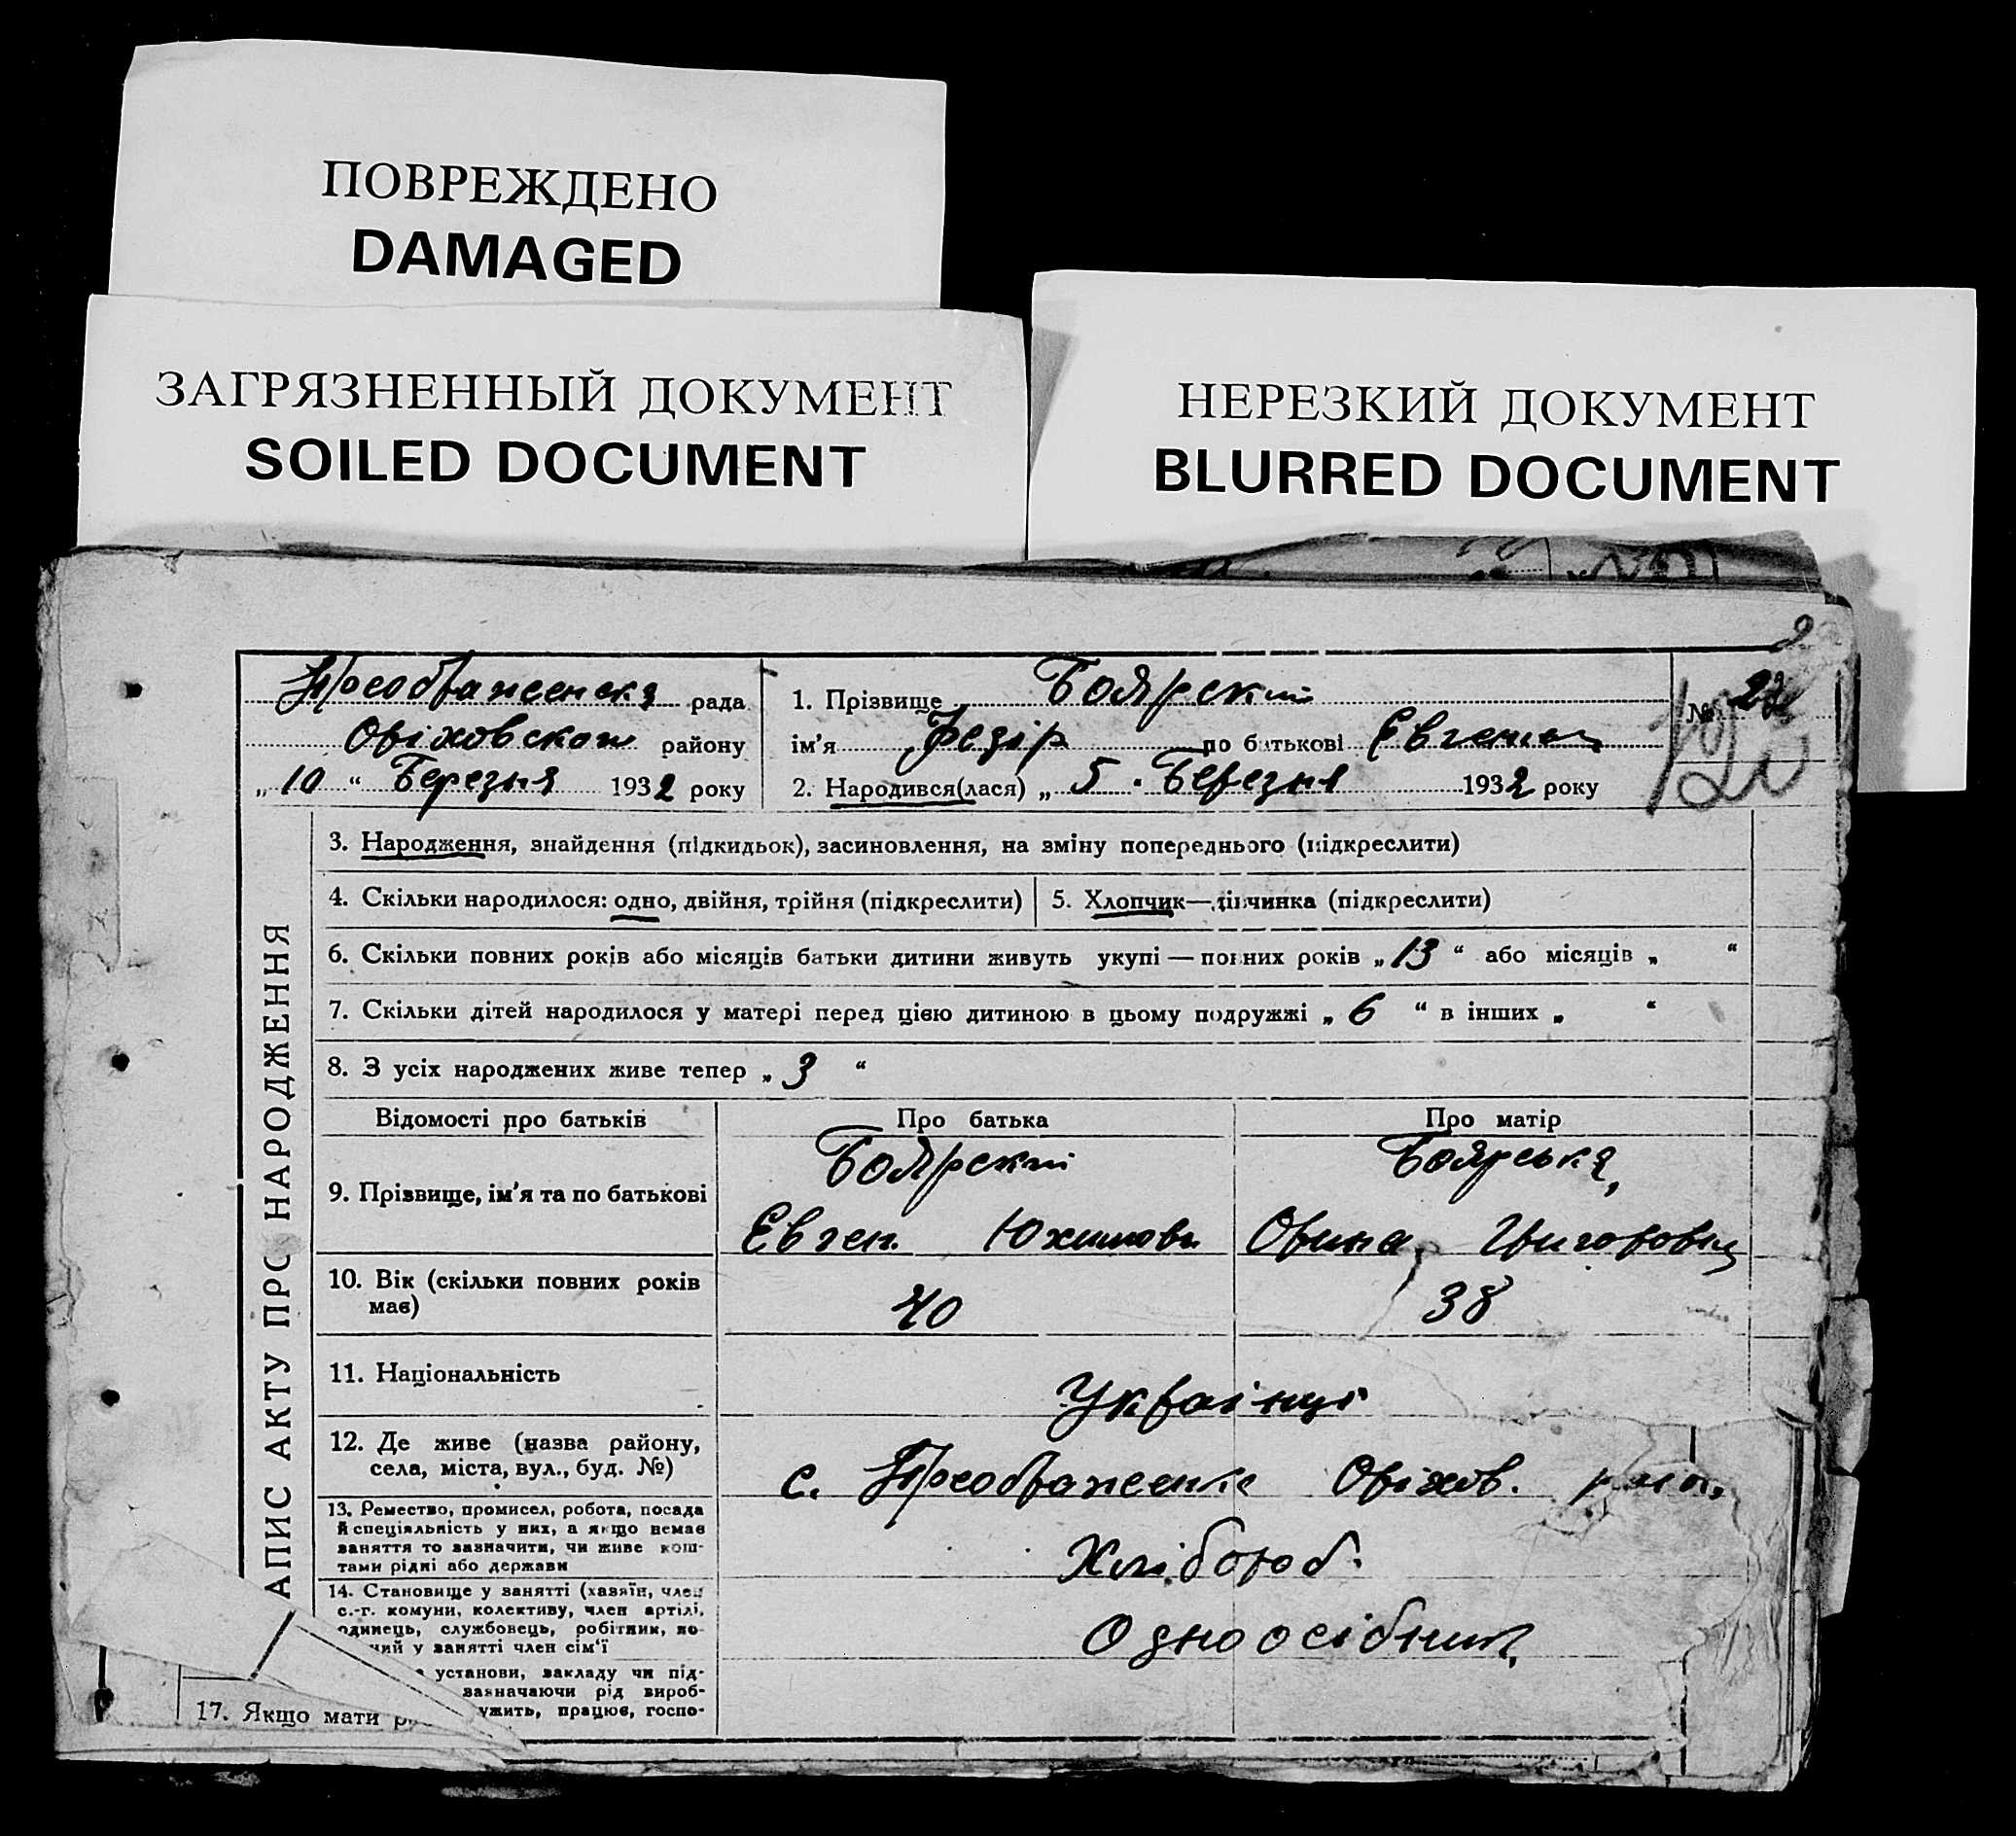 ПОВРЕЖДЕНО
DAMAGED
ЗАГРЯЗНЕННЫЙ ДОКУМЕНТ
SOILED DOCUMENT
НЕРЕЗКИЙ ДОКУМЕНТ
BLURRED DOCUMENT
Преображенска рада
Оріховского району
„10“ Березня 1932 року
1. Прізвище Боярский
ім'я Федір по батькові Евгенов
2. Народився(лася) „5. Березня 1932 року
№ 22
3. Народження, знайдення (підкидьок), засиновлення, на зміну попереднього (підкреслити)
4. Скільки народилося: одно, двійня, трійня (підкреслити)
5. Хлопчик—дівчинка (підкреслити)
6. Скільки повних років або місяців батьки дитини живуть укупі — повних років „13“ або місяців „ “
7. Скільки дітей народилося у матері перед цією дитиною в цьому подружжі „6“ в інших „ “
8. З усіх народжених живе тепер „3“
Відомості про батьків
Про батька
Про матір
9. Прізвище, ім'я та по батькові
Боярский
Евген Юхимов
Боярська,
Орина Григоровна
10. Вік (скільки повних років має)
40
38
11. Національність
Українці
12. Де живе (назва району,
села, міста, вул., буд. №)
с. Преображенка Оріхов. район.
13. Ремество, промисел, робота, посада
й спеціяльність у них, а якщо немає
заняття то зазначити, чи живе кош-
тами рідні або держави
Хлібороб.
14. Становище у занятті (хазяїн, член
с.-г. комуни, колективу, член артілі,
одинець, службовець, робітник, по-
у занятті член сім'ї
Одноосібник
установи, закладу чи під-
зазначаючи рід вироб-
працює, госпо-
17. Якщо мати
АПИС АКТУ ПРО НАРОДЖЕННЯ